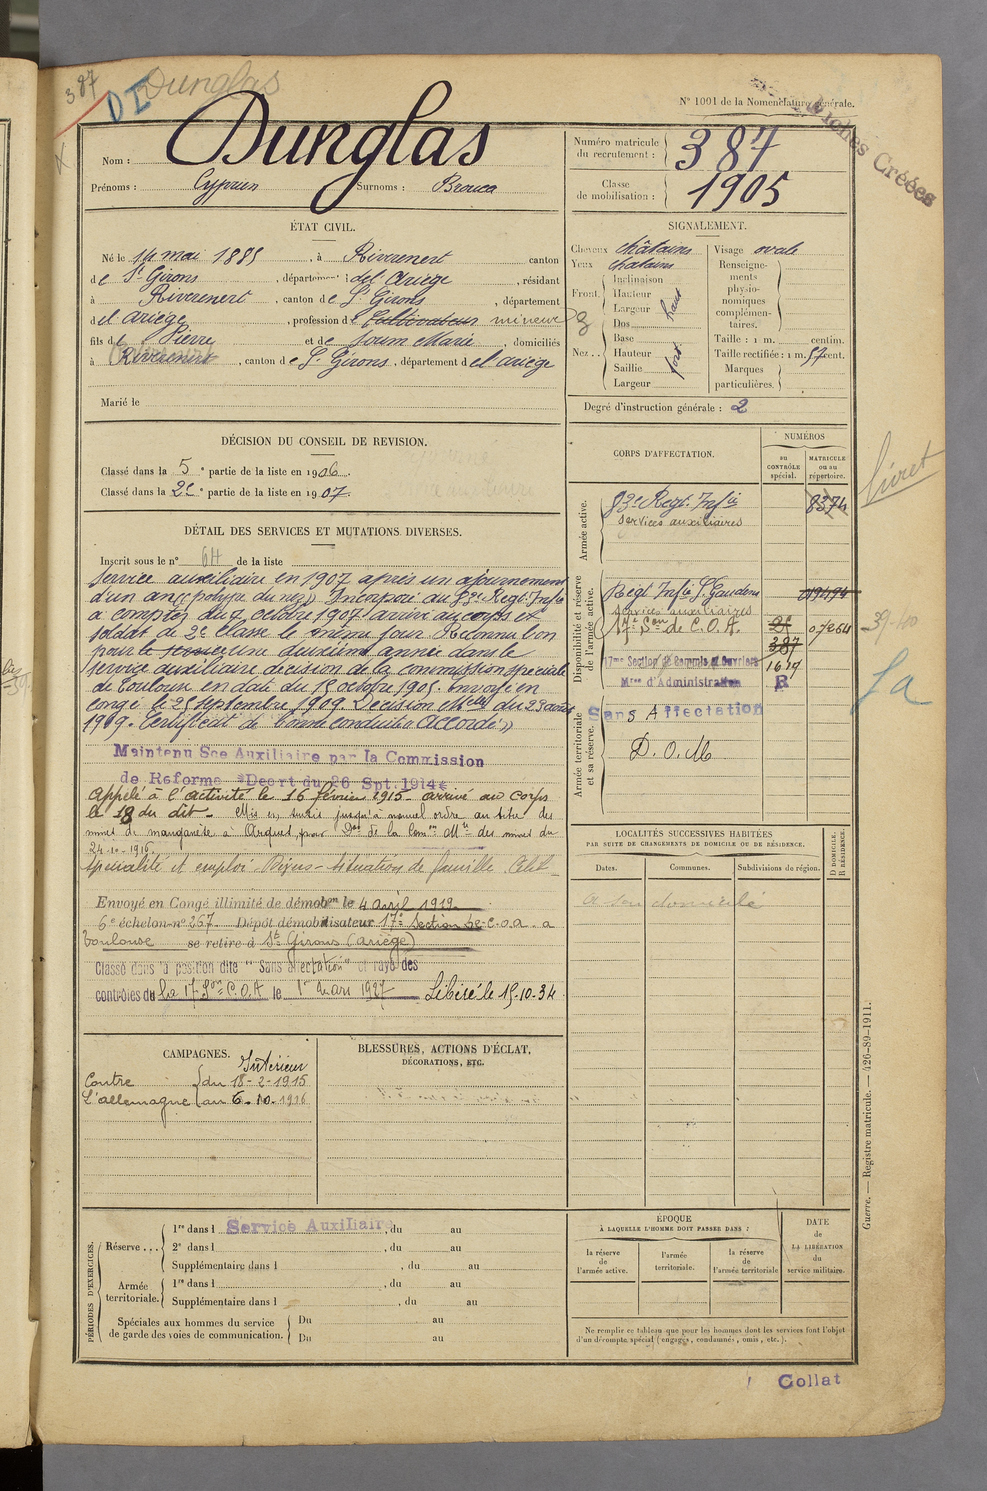 387
DI
Dunglas
N° 1001 de la Nomenclature générale.
Fiches Créées
Nom : Dunglas
Prénoms : Cyprien Surnoms : Brouca
Numéro matricule du recrutement : 387
Classe de mobilisation : 1905
ÉTAT CIVIL.
Né le 14 mai 1885, à Riverenert canton
de St Girons, département de l'Ariège, résidant
à Riverenert, canton de St Girons, département
de l'ariège, profession de Cultivateur mineur
fils de Pierre et de Soum Marie, domiciliés
à Riverenert, canton de St Girons, département de l'ariège
Marié le
SIGNALEMENT.
Cheveux châtains
Yeux chatains
Front. Inclinaison
Hauteur haut
Largeur
Nez . . Dos
Base
Hauteur fort
Saillie
Largeur
Visage ovale
Renseignements physionomiques complémentaires.
Taille : 1 m. centim.
Taille rectifiée : 1 m. 57 cent.
Marques particulières.
Degré d'instruction générale : 2
DÉCISION DU CONSEIL DE REVISION.
Classé dans la 5e partie de la liste en 1906.
Classé dans la 2e partie de la liste en 1907.
DÉTAIL DES SERVICES ET MUTATIONS DIVERSES.
Inscrit sous le n° 64 de la liste
Service auxiliaire en 1907 après un ajournement
d'un an (polype du nez) Incorporé au 83e Regt. Infie
à compter du 7 octobre 1907 arrivé au corps et
soldat de 2e classe le même jour Reconnu bon
pour le une deuxième année dans le
service auxiliaire décision de la commission spéciale
de Toulouse en date du 15 octobre 1908. Envoyé en
congé le 25 septembre 1909. Décision Melle du 23 aout
1909. Certificat de bonne conduite Accordé »
Maintenu Sce Auxiliaire par la Commission
de Reforme "Decrt du 26 Spt. 1914"
Appelé à l'activité le 16 février 1915 - arrivé au corps
le 18 du dit - Mis en sursis jusqu'à nouvel ordre au titre des
mines de manganèse à pour Don de la Comon Mre des mines du
24-10-1916
Spécialité et emploi - situation de famille. Célib
Envoyé en Congé illimité de démobon le 4 Avril 1919
6e échelon n° 267 Dépôt démobilisateur 17e Section de C.O.A. a
Toulouse se retire à St Girons (Ariège)
Classé dans la position dite "Sans affectation" et rayé des
contrôles du la 17 Son C.O.A le 1er Mars 1927 Libéré le 15-10-34
CORPS D'AFFECTATION.
NUMÉROS
au CONTRÔLE spécial.
MATRICULE ou au répertoire.
Armée active.
83e Regt. Infie 8374
services auxiliaires
Disponibilité et réserve de l'armée active.
Regt Infie St Gaudens 019494
services auxiliaires
17e Son de C.O.A. 07264
387
17me Section de Commis et Ouvriers 1619
Mres d'Administration R
Armée territoriale et sa réserve.
Sans Affectation
D. O. M
livret
39-40
Sa
LOCALITÉS SUCCESSIVES HABITÉES
PAR SUITE DE CHANGEMENTS DE DOMICILE OU DE RÉSIDENCE.
Dates. Communes. Subdivisions de région. D DOMICILE. R RÉSIDENCE.
a son domicile
CAMPAGNES.
Intérieur
Contre du 18-2-1915
L'allemagne au 6-10-1916
BLESSURES, ACTIONS D'ÉCLAT,
DÉCORATIONS, ETC.
PÉRIODES D'EXERCICES.
Réserve . . . 1re dans l Service Auxiliaire, du au
2e dans l , du au
Supplémentaire dans l , du au
Armée territoriale. 1re dans l , du au
Supplémentaire dans l , du au
Spéciales aux hommes du service de garde des voies de communication. Du au
Du au
ÉPOQUE
À LAQUELLE L'HOMME DOIT PASSER DANS :
la réserve de l'armée active.
l'armée territoriale.
la réserve de l'armée territoriale
DATE de LA LIBÉRATION du service militaire.
Ne remplir ce tableau que pour les hommes dont les services font l'objet
d'un décompte spécial (engagés, condamnés, omis, etc.).
Guerre. — Registre matricule. — 426-89-1911.
Collat